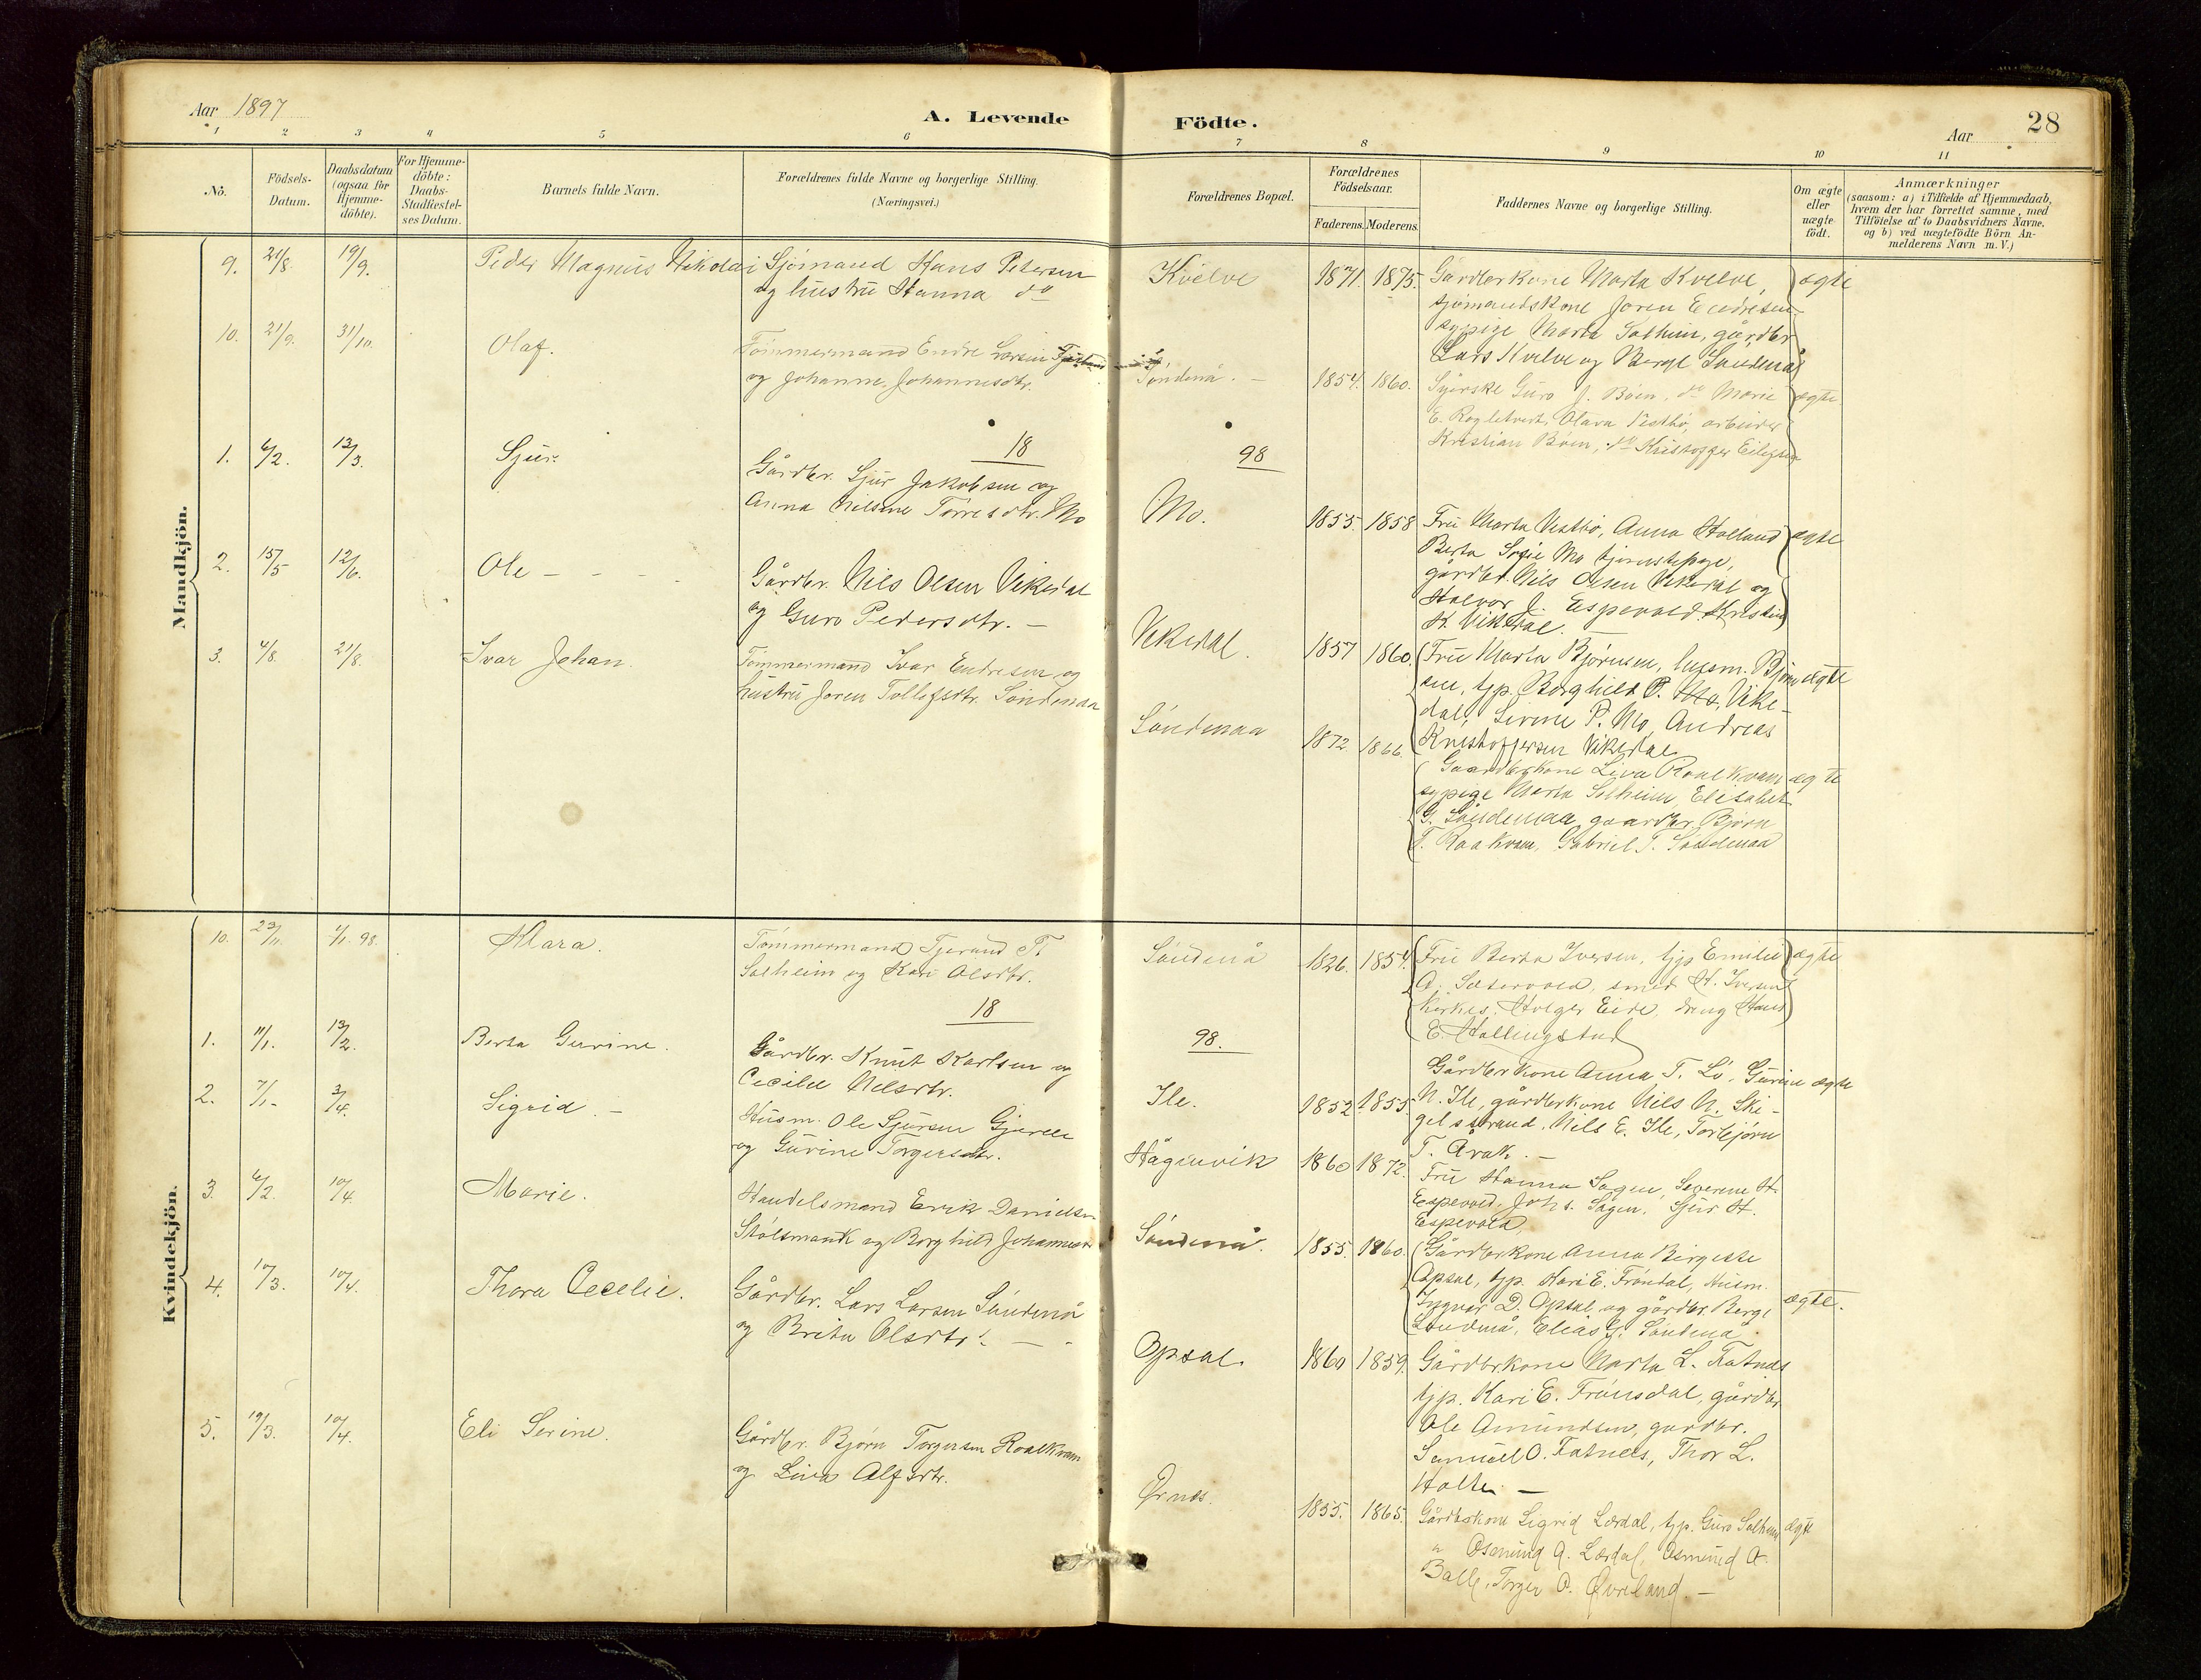 Aar 1897
A. Levende Födte.
Aar 28
1 2 3 4 5 6 7 8 9 10 11
No.
Födsels-Datum.
Daabsdatum (ogsaa for Hjemme-döbte).
For Hjemme-döbte: Daabs-Stadfæstel-ses Datum.
Barnets fulde Navn.
Forældrenes fulde Navne og borgerlige Stilling.
(Næringsvei.)
Forældrenes Bopæl.
Forældrenes Födselsaar.
Faderens. Moderens.
Faddernes Navne og borgerlige Stilling.
Om ægte eller uægte födt.
Anmærkninger
(saasom: a) i Tilfælde af Hjemmedaab, hvem der har forrettet samme, med Tilföielse af to Daabsvidners Navne, og b) ved uægtefödte Börn An-melderens Navn m. V.)
Mandkjön.
9. 21/8 19/9. Peder Magnus Nikolai Sjömand Hans Petersen
og hustru Hanna do
Kvelve 1871. 1875. Gårdbrkone Marta Kvelve, ægte
sjömandskone Joren Endresen
sypige Marta Solheim, gårdbr
Lars Kvelve og Berge Söndenå
10. 21/9. 31/10. Olaf. Tömmermand Endre Larsen
og Johanne Johannesdtr.
Söndenå. 1854. 1860. Syerske Guro J. Böen, do Marie ægte
Olava Vestbö, arbeider
Kristian Böen, do Kristoffer
18 98
1. 6/2. 13/3. Sjur. Gårdbr. Sjur Jakobsen og
Anna Torresdtr. Mo
Mo. 1855. 1858 Fru Marta Vestbö, Anna Holland ægte
Berta Sofie Mo tjenestepige,
gårdbr. Nils Olsen Vikedal og
Halvor J. Espevold. Kristin
K. Vikedal.
2. 15/5 12/6. Ole - - - - Gårdbr. Nils Olsen Vikedal
og Guro Pedersdtr. -
Vikedal. 1857 1860. Fru Marta Björnsen, Björn ægte
sen, tjp. Borghild P. Mo, Vike-
dal, Serine P. Mo, Andreas
Kristoffersen Vikedal
3. 4/8. 21/8. Ivar Johan. Tömmermand Ivar Endresen og
hustru Joren Tollefsdtr. Söndenaa
Söndenaa 1872. 1866. Gaardbrkone Liva Roalkvam ægte
sypige Marta Solheim, Elisabet
G. Söndenaa, gaardbr. Björn
T. Roalkvam, Gabriel T. Söndenaa
Kvindekjön.
10. 23/11. 1/1. 98. Klara. Tömmermand Tjerand
Solheim og Kari Olsdtr.
Söndenå 1826. 1854. Fru Berta Iversen, tjp Emilie ægte
A. Sætervold, smed H. Iversen
Holger Eide, dreng Hans
E. Hallingstad
18 98.
1. 11/1. 13/2. Berta Gurine. Gårdbr. Knut Karlsen og
Cecilie Nilsdtr.
Ile. 1852 1855. Gårdbrkone Anna T. Lö, Gurine ægte
N. Ile, gårdbrkone Nils N. Ski-
gelstrand, Nils E. Ile, Torbjörn
T. Årak. -
2. 7/1. 3/4. Sigrid. - Husm. Ole Sjursen
og Gurine Torgersdtr.
Hågenvik 1860 1872. Fru Hanna Sagen, Severine H.
Espevold, Johs. Sagen, Sjur H.
Espevold,
3. 6/2. 10/4. Marie. Handelsmand Erik Danielsen
og Borghild Johannesdtr
Söndenå. 1855. 1860. Gårdbrkone Anna Birgitte
Opsal, tjp. Kari E. Fröndal, Husm.
Ingvar D. Opsal og gårdbr. Berge
Söndenå, Elias G. Söndenå ægte.
4. 10/3. 10/4. Thora Cecelie. Gårdbr. Lars Larsen Söndenå
og Brita Olsdtr. -
Opsal. 1860 1859. Gårdbrkone Marta L. Fatnes
tjp. Kari E. Frönsdal, gårdbr
Ole Amundsen, gardbr.
Samuel O. Fatnes, Thor L.
Holte. -
5. 19/3. 10/4. Eli Serine. Gårdbr. Björn Torgersen Roalkvam
og Liva Alfsdtr.
Ørnes. 1855. 1865. Gårdbrkone Sigrid Lördal, tjp. Guro Solheim ægte
" Osmund A. Lördal, Osmund A.
Torger O. Øvreland. -